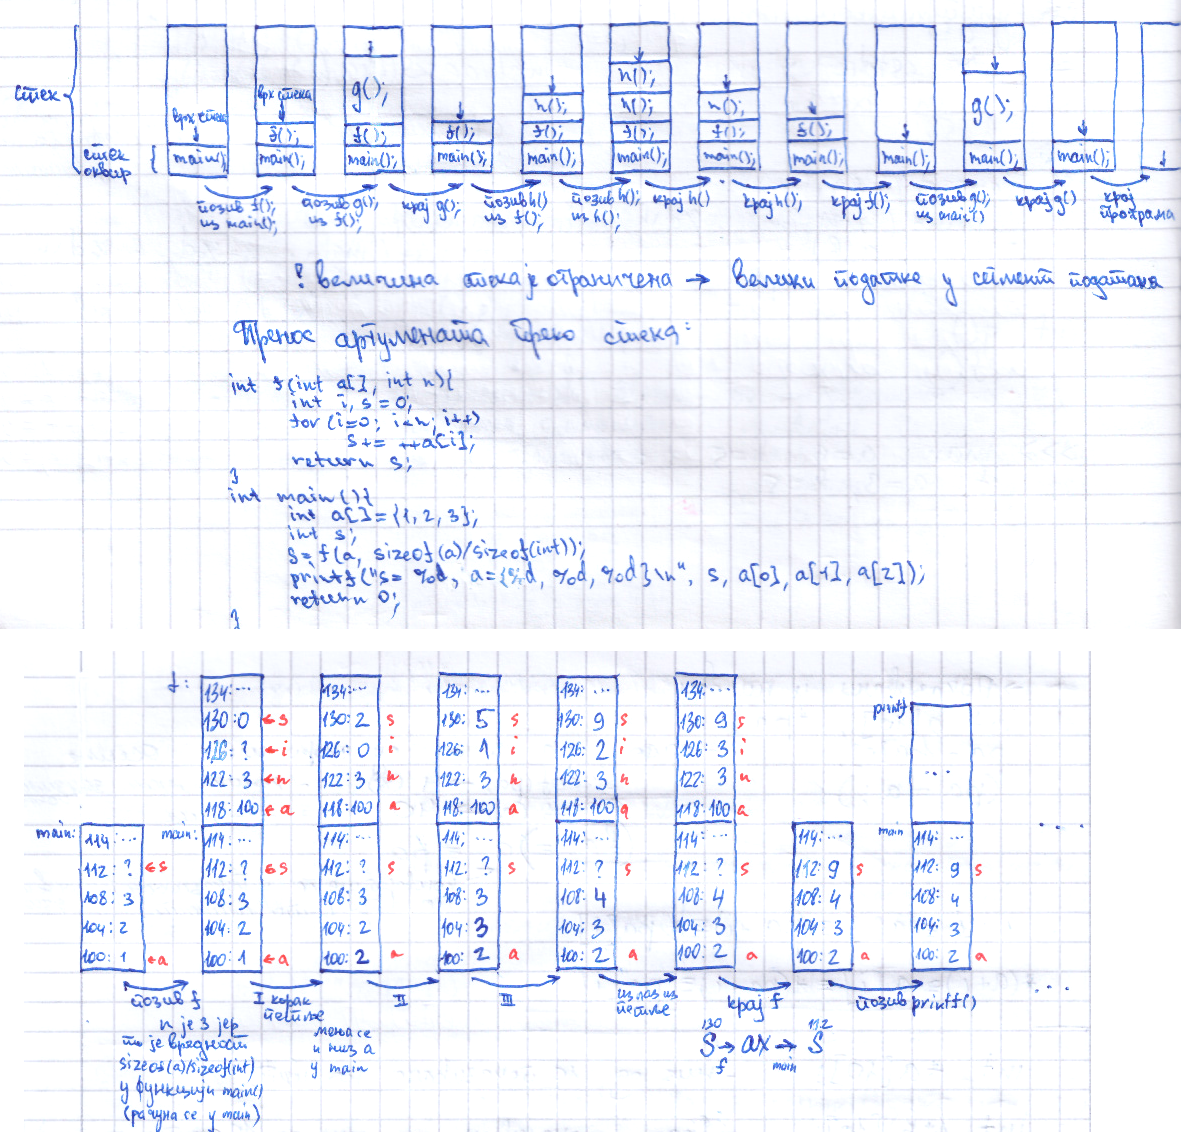 стек
стек
оквир
врх стека
main();
врх стека
f();
main();
g();
f();
main();
f();
main();
h();
f();
main();
h();
h();
f();
main();
h();
f();
main();
f();
main();
main();
g();
main();
main();
позив f();
из main();
позив g();
из f();
крај g();
позив h()
из f();
позив h();
из h();
крај h()
крај h();
крај f();
позив g();
из main()
крај g()
крај
програма
! величина стека је ограничена → велики податке у сегмент података
Пренос аргумената преко стека:
int f(int a[], int n){
int i, s=0;
for (i=0; i<n; i++)
s+= ++a[i];
return s;
}
int main(){
int a[]={1, 2, 3};
int s;
s=f(a, sizeof(a)/sizeof(int));
printf("s= %d, a={%d, %d, %d}\n", s, a[0], a[1], a[2]);
return 0;
}
main:
114: ...
112: ? ←s
108: 3
104: 2
100: 1 ←a
f:
134: ...
130: 0 ←s
126: ? ←i
122: 3 ←n
118: 100 ←a
main:
114: ...
112: ? ←s
108: 3
104: 2
100: 1 ←a
134: ...
130: 2 s
126: 0 i
122: 3 n
118: 100 a
114: ...
112: ? s
108: 3
104: 2
100: 2 a
134: ...
130: 5 s
126: 1 i
122: 3 n
118: 100 a
114: ...
112: ? s
108: 3
104: 3
100: 2 a
134: ...
130: 9 s
126: 2 i
122: 3 n
118: 100 a
114: ...
112: ? s
108: 4
104: 3
100: 2 a
134: ...
130: 9 s
126: 3 i
122: 3 n
118: 100 a
114: ...
112: ? s
108: 4
104: 3
100: 2 a
114: ...
112: 9 s
108: 4
104: 3
100: 2 a
printf
...
main
114: ...
112: 9 s
108: 4
104: 3
100: 2 a
...
позив f
I корак
петље
II
III
излаз из
петље
крај f
позив printf()
...
n је 3 јер
то је вредност
sizeof(a)/sizeof(int)
у функцији main()
(рачуна се у main)
мења се
и низ a
у main
130 112
S → ax → S
f main